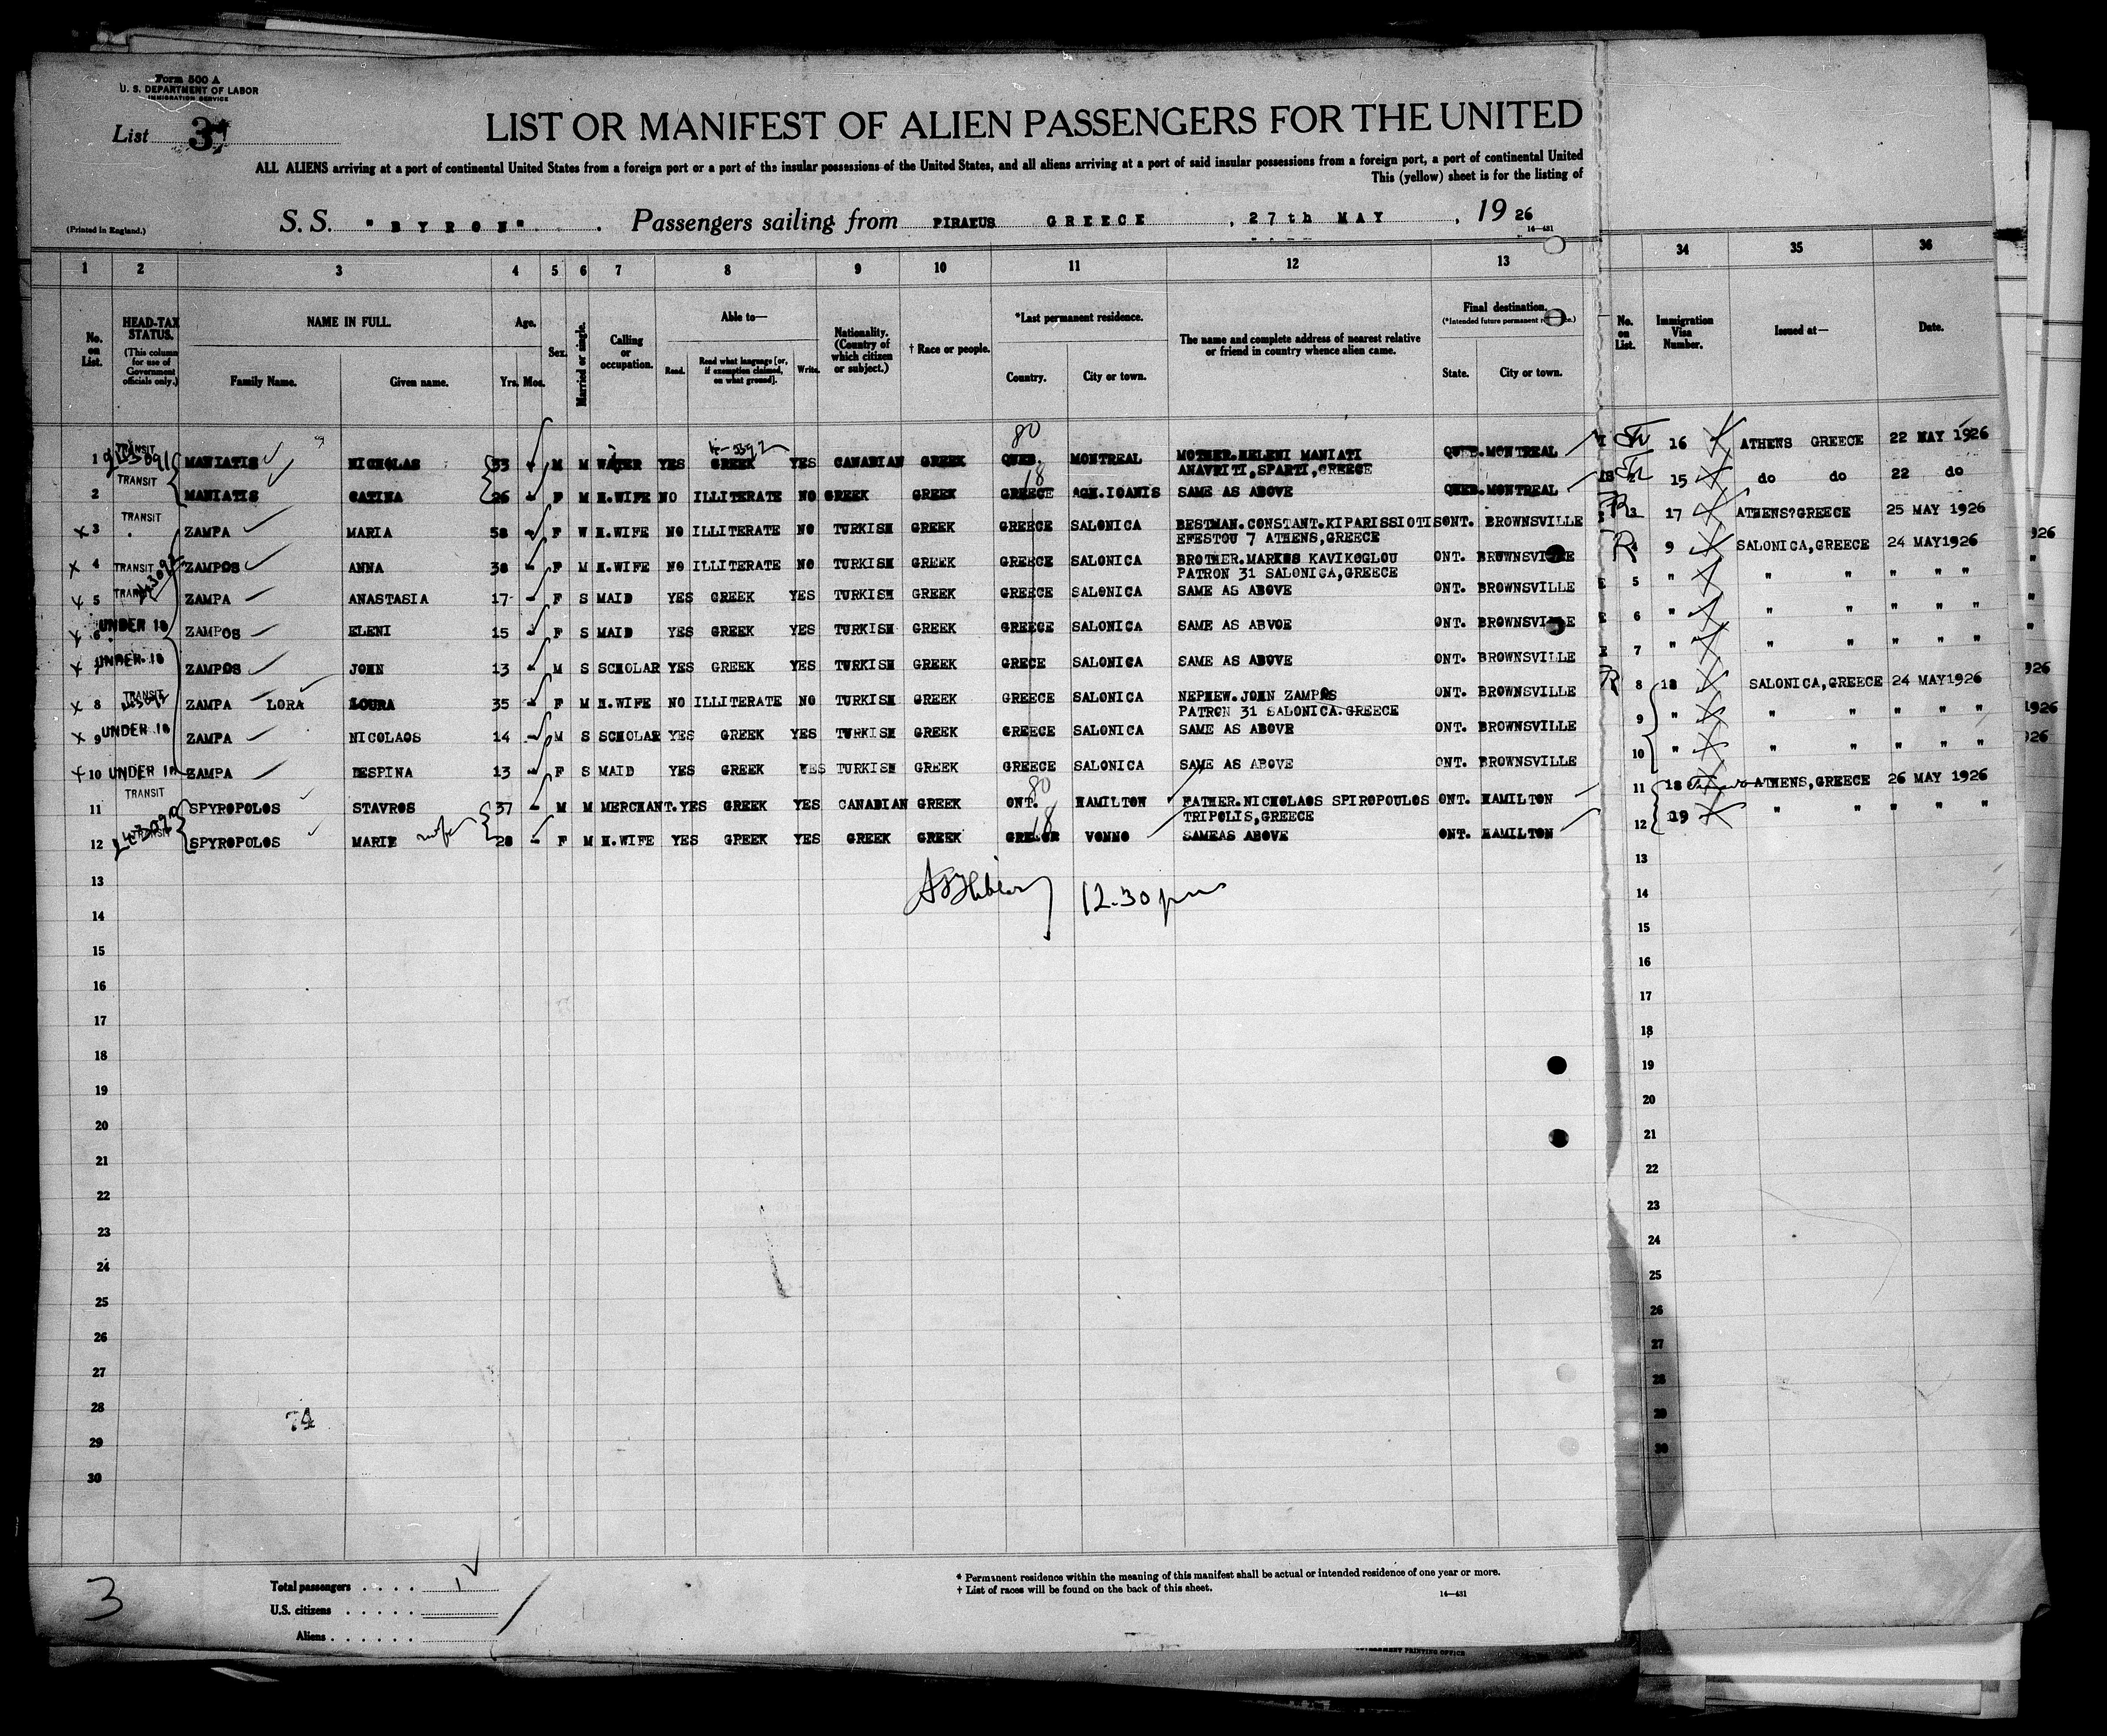 Form 500 A
U. S. DEPARTMENT OF LABOR
IMMIGRATION SERVICE
List 3
LIST OR MANIFEST OF ALIEN PASSENGERS FOR THE UNITED
ALL ALIENS arriving at a port of continental United States from a foreign port or a port of the insular possessions of the United States, and all aliens arriving at a port of said insular possessions from a foreign port, a port of continental United
This (yellow) sheet is for the listing of
(Printed in England.)
S. S. "BYRON". Passengers sailing from PIRAEUS GREECE, 27th MAY, 19 26
14—431
1 2 3 4 5 6 7 8 9 10 11 12 13 34 35 36
No. on List.
HEAD-TAX STATUS.
(This column for use of Government officials only.)
NAME IN FULL.
Family Name. Given name.
Age.
Yrs. Mos.
Sex.
Married or single.
Calling or occupation.
Able to—
Read. Read what language [or, if exemption claimed, on what ground]. Write.
Nationality. (Country of which citizen or subject.)
† Race or people.
*Last permanent residence.
Country. City or town.
The name and complete address of nearest relative or friend in country whence alien came.
Final destination.
State. City or town.
No. on List.
Immigration Visa Number.
Issued at—
Date.
1 TRANSIT MANIATIS NICHOLAS 33 M M WAITER YES GREEK YES CANADIAN GREEK QUEB. 80 MONTREAL MOTHER.HELENI MANIATI QUEB.MONTREAL 16 ATHENS GREECE 22 MAY 1926
ANAVRITI,SPARTI,GREECE
2 TRANSIT MANIATIS CATINA 26 F M H.WIFE NO ILLITERATE NO GREEK GREEK GREECE AGH.IOANIS SAME AS ABOVE QUEB.MONTREAL 15 do do 22 do
X 3 TRANSIT ZAMPA MARIA 58 F W H.WIFE NO ILLITERATE NO TURKISH GREEK GREECE SALONICA BESTMAN.CONSTANT.KIPARISSIOTIS ONT. BROWNSVILLE 3 17 ATHENS?GREECE 25 MAY 1926
EFESTOU 7 ATHENS,GREECE
X 4 TRANSIT ZAMPOS ANNA 38 F M H.WIFE NO ILLITERATE NO TURKISH GREEK GREECE SALONICA BROTHER.MARKOS KAVIKOGLOU ONT. BROWNSVILLE 9 SALONICA,GREECE 24 MAY1926
PATRON 31 SALONICA,GREECE
X 5 ZAMPA ANASTASIA 17 F S MAID YES GREEK YES TURKISH GREEK GREECE SALONICA SAME AS ABOVE ONT. BROWNSVILLE 5 " " " " " "
X 6 UNDER 16 ZAMPOS ELENI 15 F S MAID YES GREEK YES TURKISH GREEK GREECE SALONICA SAME AS ABVOE ONT. BROWNSVILLE 6 " " " " " "
X 7 UNDER 16 ZAMPOS JOHN 13 M S SCHOLAR YES GREEK YES TURKISH GREEK GRECE SALONICA SAME AS ABOVE ONT. BROWNSVILLE 7 " " " " " "
X 8 TRANSIT ZAMPA LORA LOURA 35 F M H.WIFE NO ILLITERATE NO TURKISH GREEK GREECE SALONICA NEPHEW.JOHN ZAMPOS ONT. BROWNSVILLE 8 18 SALONICA,GREECE 24 MAY1926
PATRON 31 SALONICA.GREECE
X 9 UNDER 16 ZAMPA NICOLAOS 14 M S SCHOLAR YES GREEK YES TURKISH GREEK GREECE SALONICA SAME AS ABOVE ONT. BROWNSVILLE 9 " " " " " "
X 10 UNDER 16 ZAMPA DESPINA 13 F S MAID YES GREEK YES TURKISH GREEK GREECE SALONICA SAME AS ABOVE ONT. BROWNSVILLE 10 " " " " " "
11 TRANSIT SPYROPOLOS STAVROS 37 M M MERCHANT.YES GREEK YES CANADIAN GREEK ONT. 80 HAMILTON FATHER.NICHOLAOS SPIROPOULOS ONT. HAMILTON 11 18 ATHENS,GREECE 26 MAY 1926
TRIPOLIS,GREECE
12 TRANSIT SPYROPOLOS MARIE wife 28 F M H.WIFE YES GREEK YES GREEK GREEK VONNO SAMEAS ABOVE ONT. HAMILTON 12 19 " " " " "
12.30 pm
13 13
14 14
15 15
16 16
17 17
18 18
19 19
20 20
21 21
22 22
23 23
24 24
25 25
26 26
27 27
28 28
29 29
30 30
74
3
Total passengers
U.S. citizens
Aliens
* Permanent residence within the meaning of this manifest shall be actual or intended residence of one year or more.
† List of races will be found on the back of this sheet.
14—431
GOVERNMENT PRINTING OFFICE